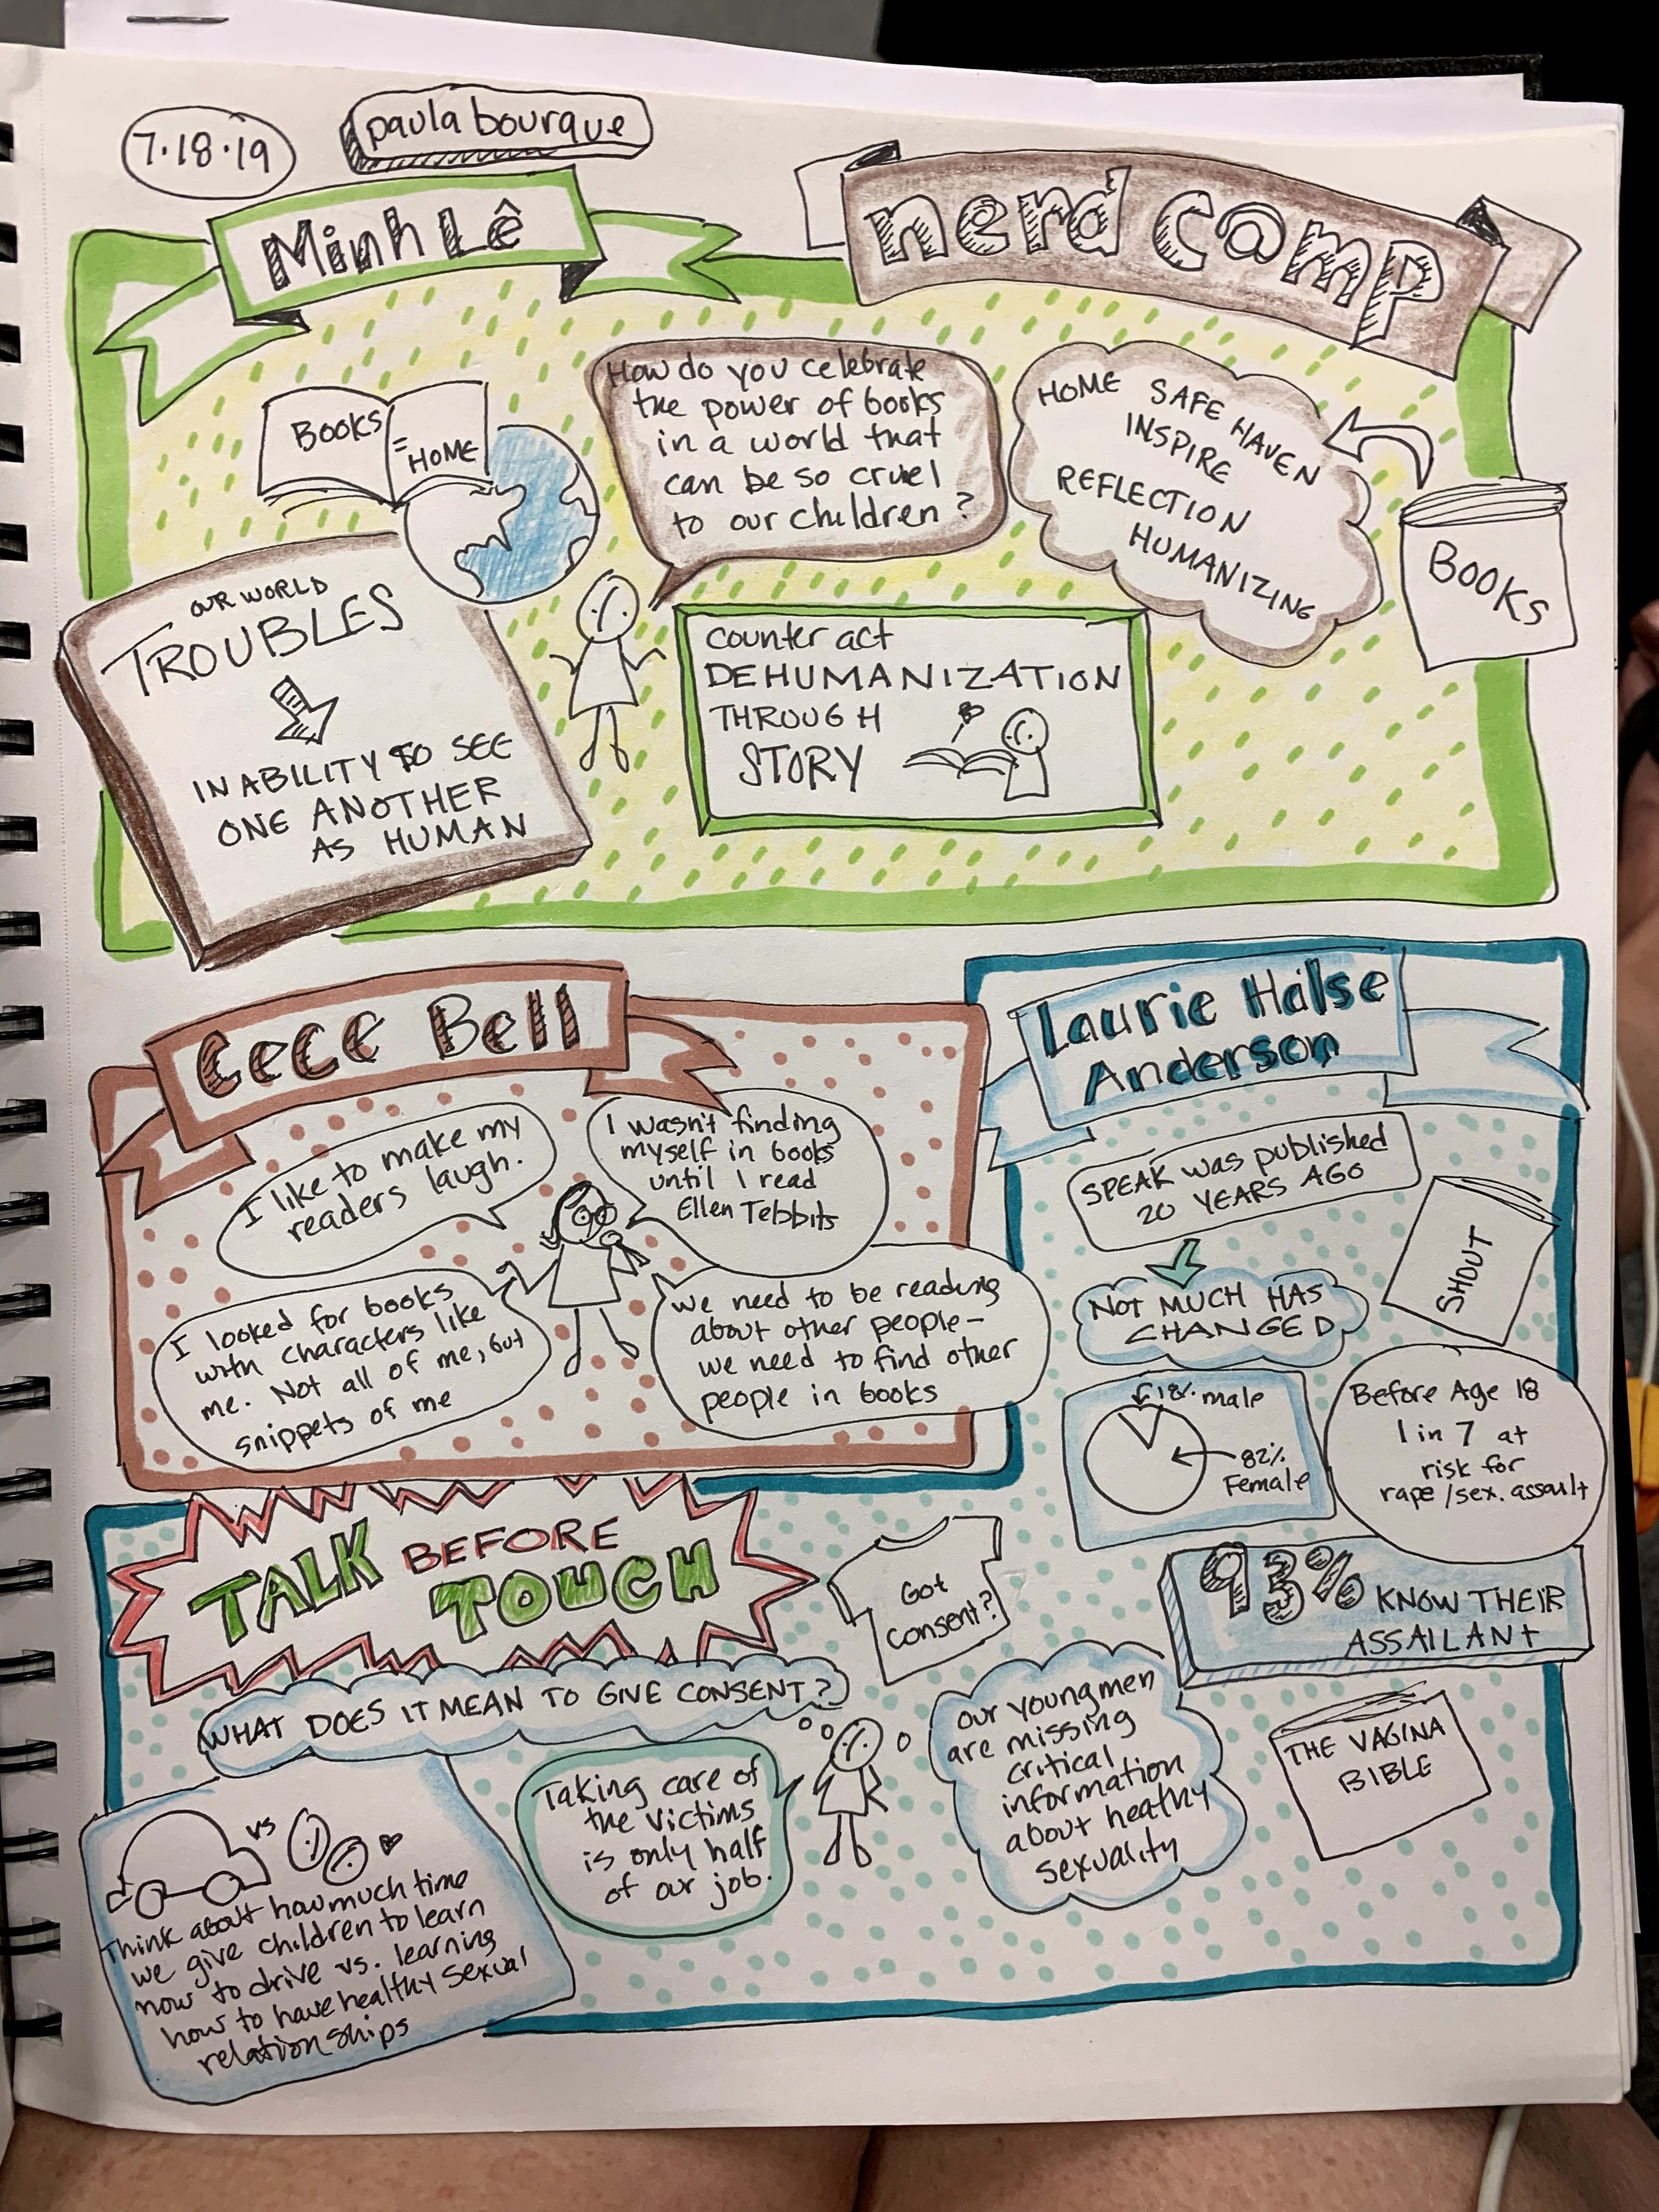 7.18.19
paula bourque
Minh Lê
nerd c@mp
BOOKS
= HOME
How do you celebrate
the power of books
in a world that
can be so cruel
to our children?
HOME SAFE HAVEN
INSPIRE
REFLECTION
HUMANIZING
BOOKS
OUR WORLD
TROUBLES
INABILITY TO SEE
ONE ANOTHER
AS HUMAN
counter act
DEHUMANIZATION
THROUGH
STORY
CeCe Bell
I like to make my
readers laugh.
I wasn't finding
myself in books
until I read
Ellen Tebbits
I looked for books
with characters like
me. Not all of me, but
snippets of me
We need to be reading
about other people-
we need to find other
people in books
Laurie Halse
Anderson
SPEAK was published
20 YEARS AGO
SHOUT
NOT MUCH HAS
CHANGED
18% male
82%
Female
Before Age 18
1 in 7 at
risk for
rape/sex. assault
93% KNOW THEIR
ASSAILANT
TALK BEFORE
TOUCH
Got
consent?
WHAT DOES IT MEAN TO GIVE CONSENT?
our young men
are missing
critical
information
about healthy
sexuality
THE VAGINA
BIBLE
Taking care of
the victims
is only half
of our job.
vs
Think about how much time
we give children to learn
how to drive vs. learning
how to have healthy sexual
relationships